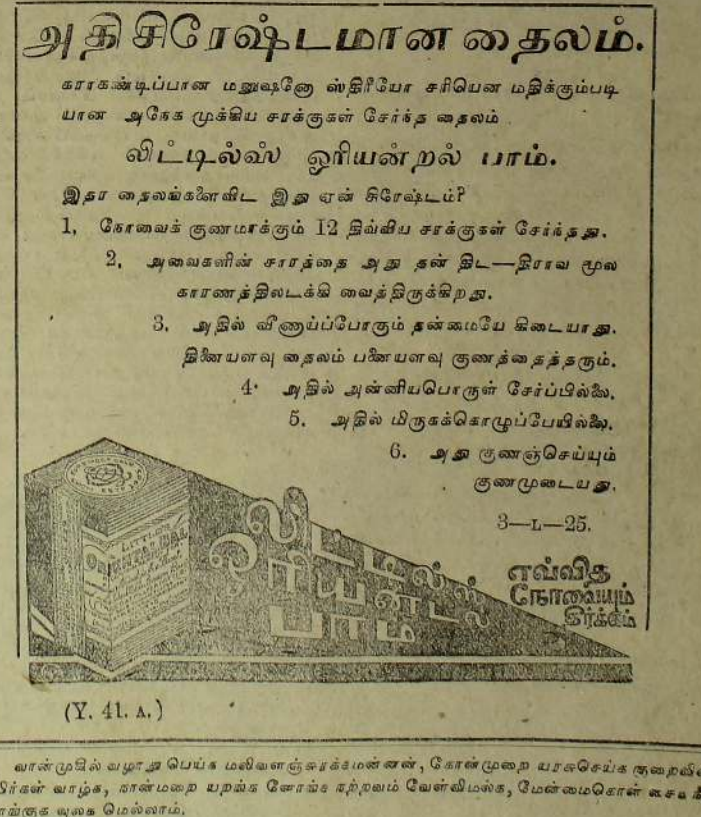 அதிசிரேஷ்டமான தைலம்.
காரகண்டிப்பான மனுஷனோ ஸ்திரீயோ சரியென மதிக்கும்படி
யான அநேக முக்கிய சரக்குகள் சேர்ந்த தைலம்
லிட்டில்ஸ் ஓரியன்றல் பாம்.
இதர தைலங்களைவிட இது ஏன் சிரேஷ்டம்?
1, நோவைக் குணமாக்கும் 12 திவ்விய சரக்குகள் சேர்ந்தது.
2, அவைகளின் சாரத்தை அது தன் திட—திராவ மூல
காரணத்திலடக்கி வைத்திருக்கிறது.
3. அதில் வீணாய்ப்போகும் தன்மையே கிடையாது.
தினையளவு தைலம் பனையளவு குணத்தைத்தரும்.
4· அதில் அன்னியபொருள் சேர்ப்பில்லை.
5. அதில் மிருகக்கொழுப்பேயில்லை.
6. அது குணஞ்செய்யும்
குணமுடையது.
3—L—25.
LITTLE'S
ORIENTAL
லிட்டில்ஸ்
ஓரியன்டல்
பாம்
எவ்வித
நோவையும்
தீர்க்கும்
(Y. 41. A.)
வான்முகில் வழாது பெய்க மலிவளஞ்சுரக்கமன்னன், கோன்முறை யரசுசெய்க குறைவி
யிர்கள் வாழ்க, நான்மறை யறங்க ளோங்க நற்றவம் வேள்விமல்க, மேன்மைகொள் சைவ
உலக மெல்லாம்.